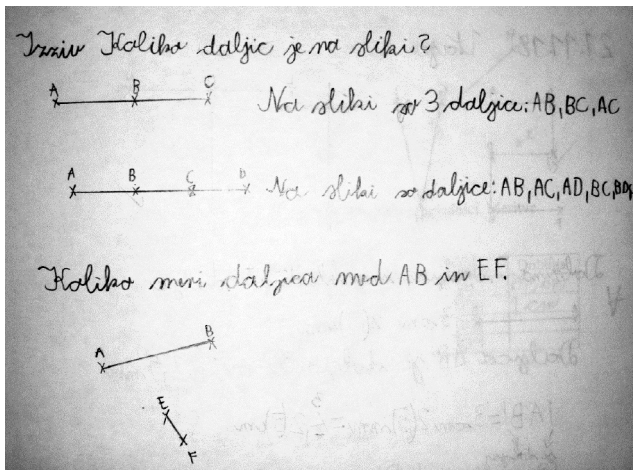 Izziv Koliko daljic je na sliki?
A B C
Na sliki so 3 daljice: AB, BC, AC
A B C D
Na sliki so daljice: AB, AC, AD, BC, BD,
Koliko meri daljica med AB in EF.
A B
E
F